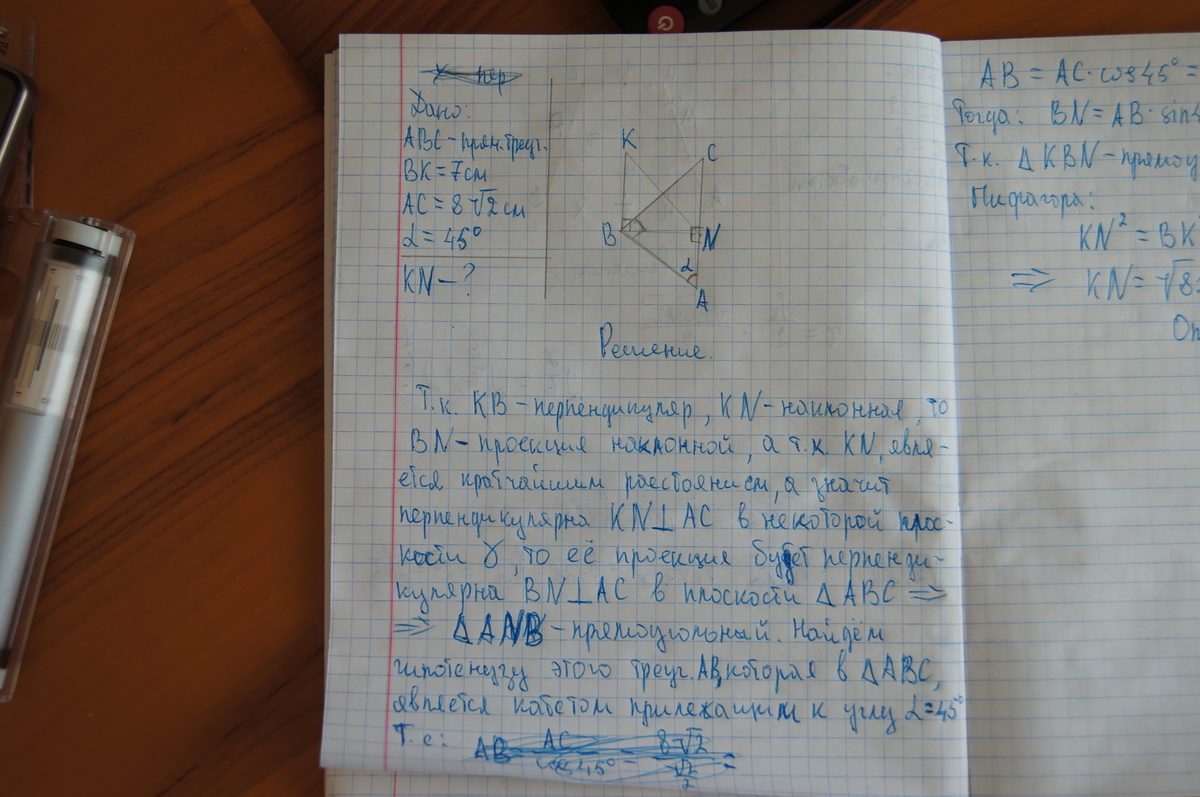 Дано:
ABC - прям. треуг.
BK = 7 см
AC = 8√2 см
α = 45°
KN - ?
K
C
B
N
α
A
Решение.
Т.к. KB - перпендикуляр, KN - наклонная, то
BN - проекция наклонной, а т.к. KN, явля-
ется кратчайшим расстоянием, а значит
перпендикулярна KN⊥AC в некоторой плос-
кости γ, то её проекция будет перпенди-
кулярна BN⊥AC в плоскости ΔABC ⇒
⇒ ΔANB - прямоугольный. Найдём
гипотенузу этого треуг. AB, которая в ΔABC,
является катетом прилежащим к углу α=45°
Т.е:
AB = AC·cos45° =
Тогда: BN = AB·sin4
Т.к. ΔKBN - прямоу
Пифагора:
KN² = BK
⇒ KN = √8
От